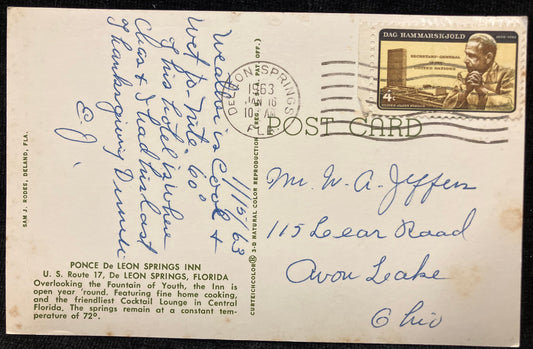 1/15/63
Weather is cool &
wet p.m. nite. 60°
This hotel is where
Chas & I had his last
Thanksgiving Dinner
E. J.
PONCE De LEON SPRINGS INN
U. S. Route 17, De LEON SPRINGS, FLORIDA
Overlooking the Fountain of Youth, the Inn is
open year 'round. Featuring fine home cooking,
and the friendliest Cocktail Lounge in Central
Florida. The springs remain at a constant tem-
perature of 72°.
SAM J. RODES, DELAND, FLA.
CURTEICHCOLOR® 3-D NATURAL COLOR REPRODUCTION (REG. U.S.A. PAT. OFF.)
DE LEON SPRINGS
1963
JAN 16
10 AM
FLA
POST CARD
DAG HAMMARSKJOLD
1905-1961
SECRETARY-GENERAL
UNITED NATIONS
4¢
Mr. W. A. Jeffers
115 Lear Road
Avon Lake
Ohio